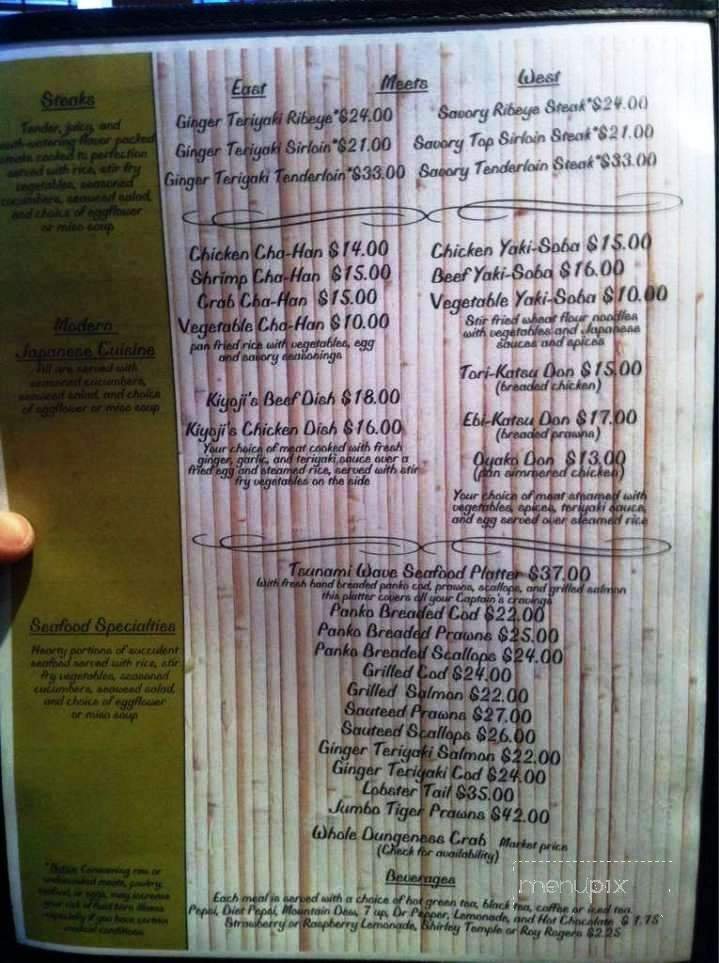 East Meets West
Steaks
Tender, juicy, and
mouth-watering flavor packed
steaks cooked to perfection
served with rice, stir fry
vegetables, seasoned
cucumbers, seaweed salad,
and choice of eggflower
or miso soup
Ginger Teriyaki Ribeye*$24.00
Ginger Teriyaki Sirloin*$21.00
Ginger Teriyaki Tenderloin*$33.00
Savory Ribeye Steak*$24.00
Savory Top Sirloin Steak*$21.00
Savory Tenderloin Steak*$33.00
Modern
Japanese Cuisine
All are served with
seasoned cucumbers,
seaweed salad, and choice
of eggflower or miso soup
Chicken Cha-Han $14.00
Shrimp Cha-Han $15.00
Crab Cha-Han $15.00
Vegetable Cha-Han $10.00
pan fried rice with vegetables, egg
and savory seasonings
Kiyoji's Beef Dish $18.00
Kiyoji's Chicken Dish $16.00
Your choice of meat cooked with fresh
ginger, garlic, and teriyaki sauce over a
fried egg and steamed rice, served with stir
fry vegetables on the side
Chicken Yaki-Soba $15.00
Beef Yaki-Soba $16.00
Vegetable Yaki-Soba $10.00
Stir fried wheat flour noodles
with vegetables and Japanese
sauces and spices
Tori-Katsu Don $15.00
(breaded chicken)
Ebi-Katsu Don $17.00
(breaded prawns)
Oyako Don $13.00
(pan simmered chicken)
Your choice of meat steamed with
vegetables, spices, teriyaki sauce,
and egg served over steamed rice
Seafood Specialties
Hearty portions of succulent
seafood served with rice, stir
fry vegetables, seasoned
cucumbers, seaweed salad,
and choice of eggflower
or miso soup
Tsunami Wave Seafood Platter $37.00
With fresh hand breaded panko cod, prawns, scallops, and grilled salmon
this platter covers all your Captain's cravings
Panko Breaded Cod $22.00
Panko Breaded Prawns $25.00
Panko Breaded Scallops $24.00
Grilled Cod $24.00
Grilled Salmon $22.00
Sauteed Prawns $27.00
Sauteed Scallops $26.00
Ginger Teriyaki Salmon $22.00
Ginger Teriyaki Cod $24.00
Lobster Tail $35.00
Jumbo Tiger Prawns $42.00
Whole Dungeness Crab Market price
(Check for availability)
*Notice: Consuming raw or
undercooked meats, poultry,
seafood, or eggs, may increase
your risk of food born illness
especially if you have certain
medical conditions
Beverages
Each meal is served with a choice of hot green tea, black tea, coffee or iced tea.
Pepsi, Diet Pepsi, Mountain Dew, 7 up, Dr Pepper, Lemonade, and Hot Chocolate $ 1.75
Strawberry or Raspberry Lemonade, Shirley Temple or Roy Rogers $2.25
menupix